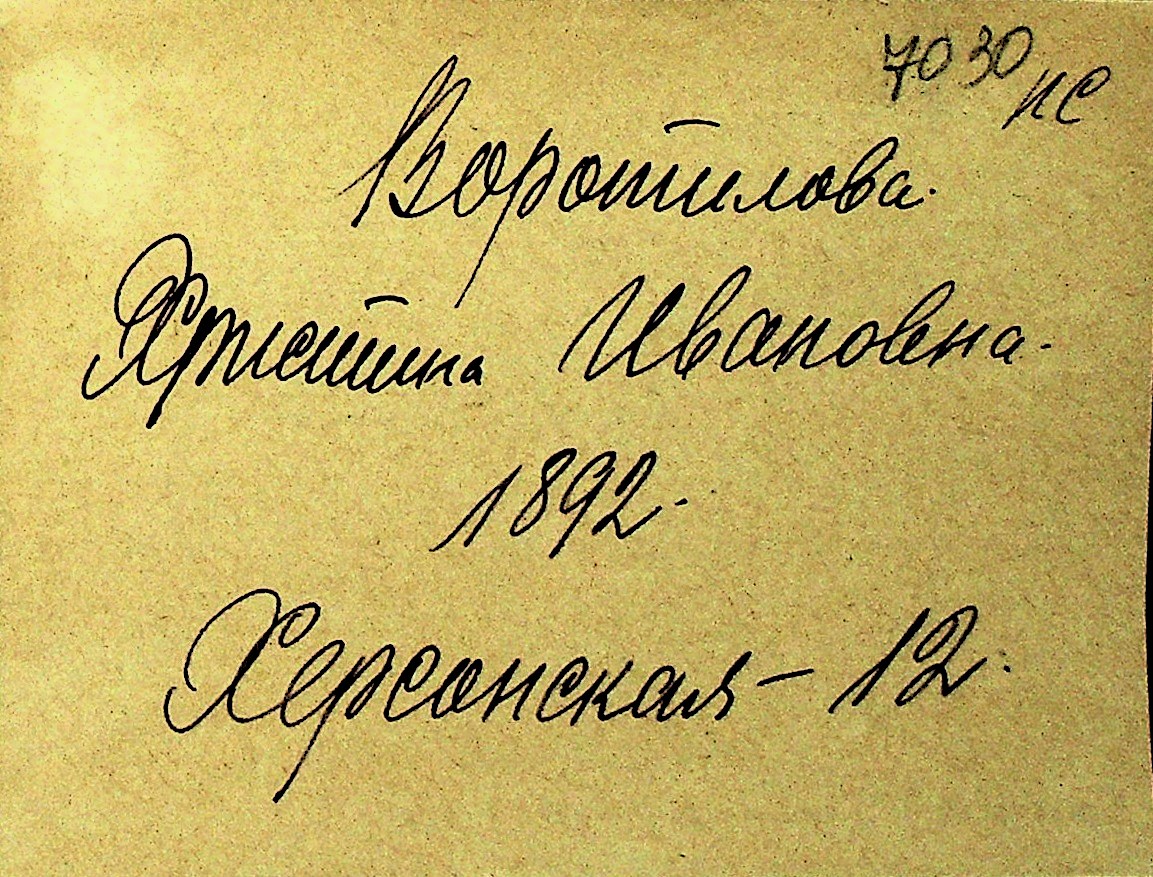 7030 пс
Воротилова.
Христина Ивановна.
1892.
Херсонская - 12.